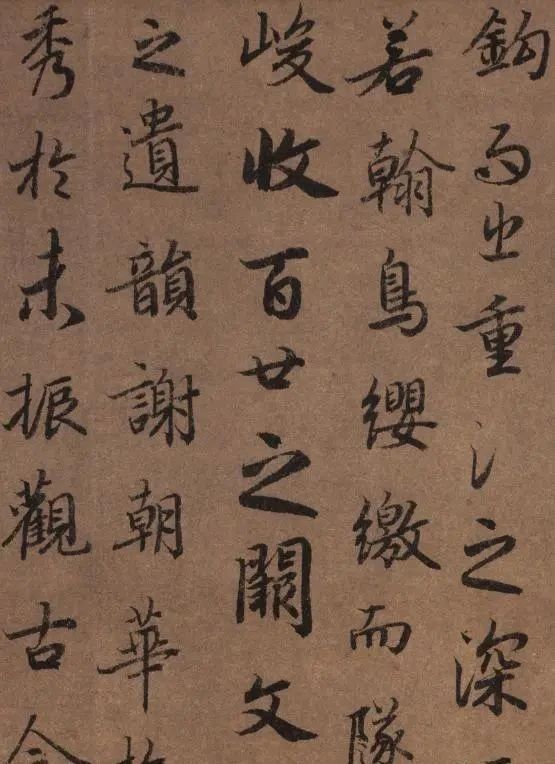 鈎而出重氵之深
若翰鳥纓繳而隊
峻收百廿之闕文
之遺韻謝朝華於
秀於未振觀古今